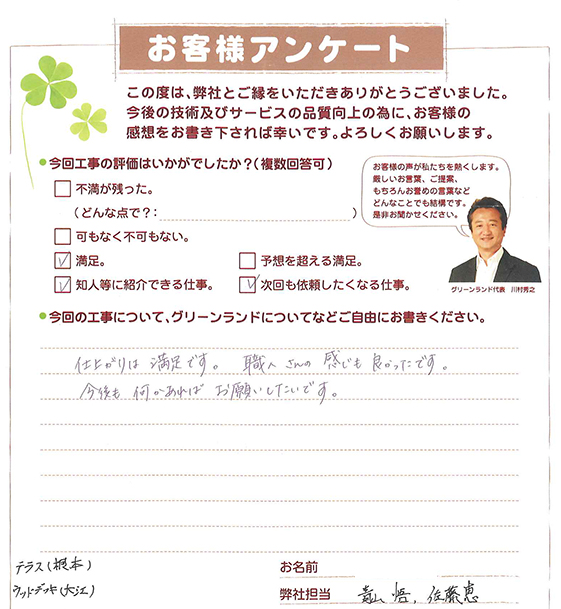 お客様アンケート
この度は、弊社とご縁をいただきありがとうございました。
今後の技術及びサービスの品質向上の為に、お客様の
感想をお書き下されば幸いです。よろしくお願いします。
●今回工事の評価はいかがでしたか？(複数回答可)
不満が残った。
(どんな点で？: )
可もなく不可もない。
満足。
予想を超える満足。
知人等に紹介できる仕事。
次回も依頼したくなる仕事。
お客様の声が私たちを熱くします。
厳しいお言葉、ご提案、
もちろんお誉めの言葉など
どんなことでも結構です。
是非お聞かせください。
グリーンランド代表 川村秀之
●今回の工事について、グリーンランドについてなどご自由にお書きください。
仕上がりは 満足です。 職人さんの 感じも 良かったです。
今後も 何かあれば お願いしたいです。
テラス(根本)
ウッドデッキ(大江)
お名前
弊社担当 悟, 佐藤恵